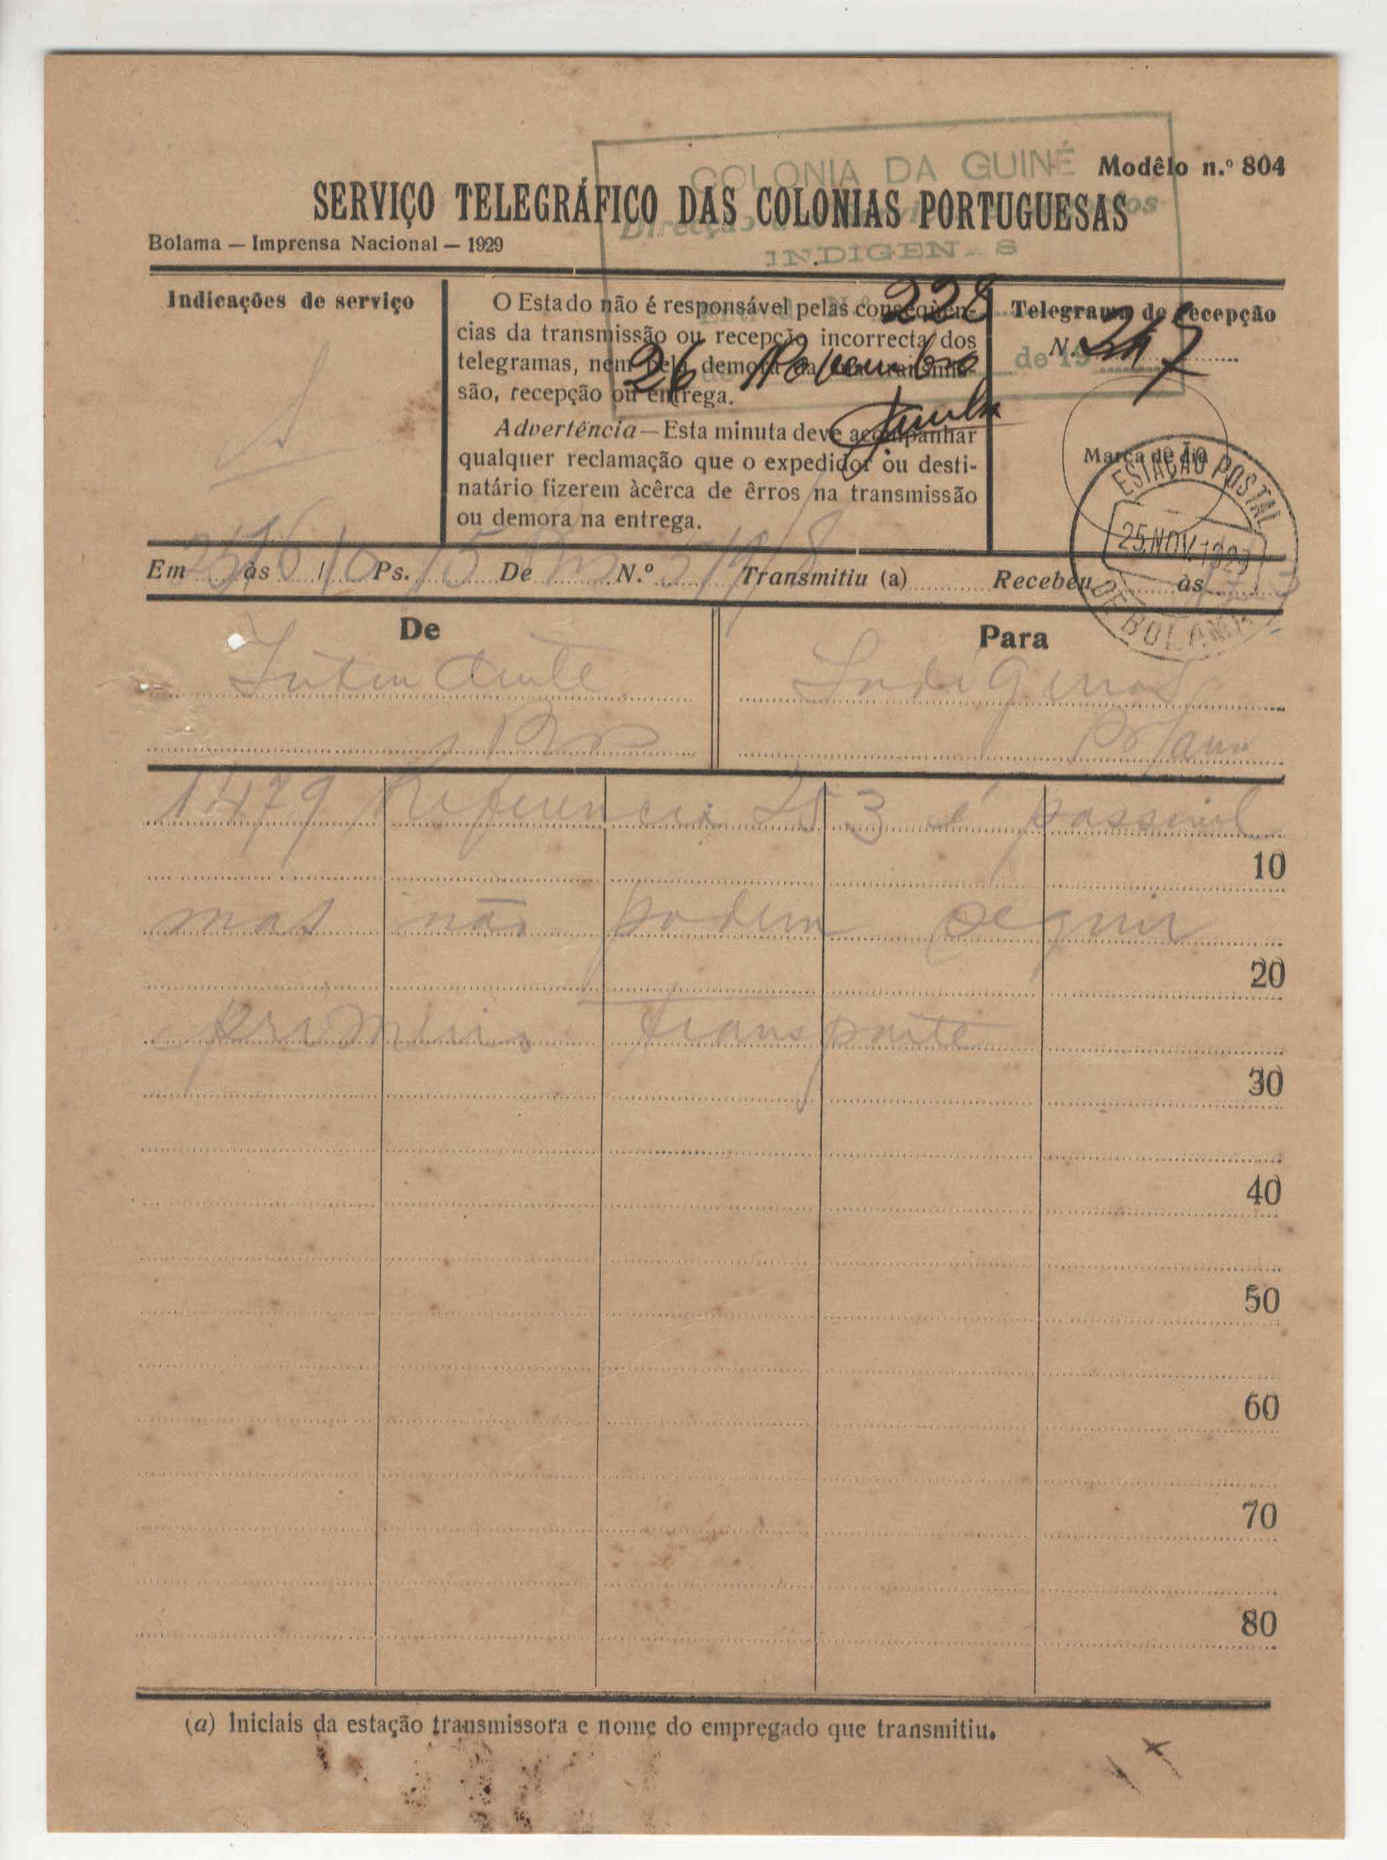 COLONIA DA GUINÉ
Modêlo n.º 804
SERVIÇO TELEGRÁFICO DAS COLONIAS PORTUGUESAS
Bolama — Imprensa Nacional — 1929
INDIGENAS
Indicações de serviço
O Estado não é responsável pelas conseqüên-
cias da transmissão ou recepção incorrecta dos
telegramas, nem pela demora na sua transmis-
são, recepção ou entrega.
Advertência — Esta minuta deve acompanhar
qualquer reclamação que o expedidor ou desti-
natário fizerem àcêrca de êrros na transmissão
ou demora na entrega.
228
26 Novembro
de 19
Telegrama de recepção
N.º 247
Marca de dia
ESTAÇÃO POSTAL
25.NOV.1929
DE BOLAMA
Em às Ps. 15 De N.º Transmitiu (a) Recebeu às
De
Para
Intendente
Indigenas
Bolama
1479 Referencia 253 é possivel
10
mas não podem seguir
20
primeiro transporte
30
40
50
60
70
80
(a) Iniciais da estação transmissora e nome do empregado que transmitiu.